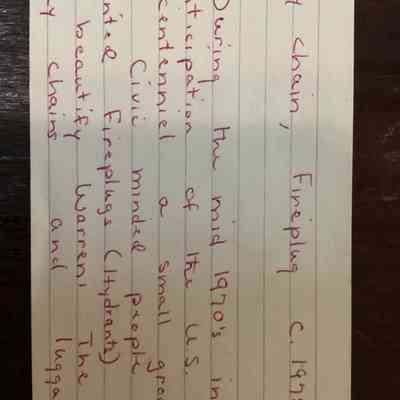 y chain, Fireplug c. 197
During the mid 1970's in
ticipation of the U.S.
centenniel a small gro
Civic minded people
nted Fireplugs (Hydrants)
beautify Warren. The
y chains and lugga